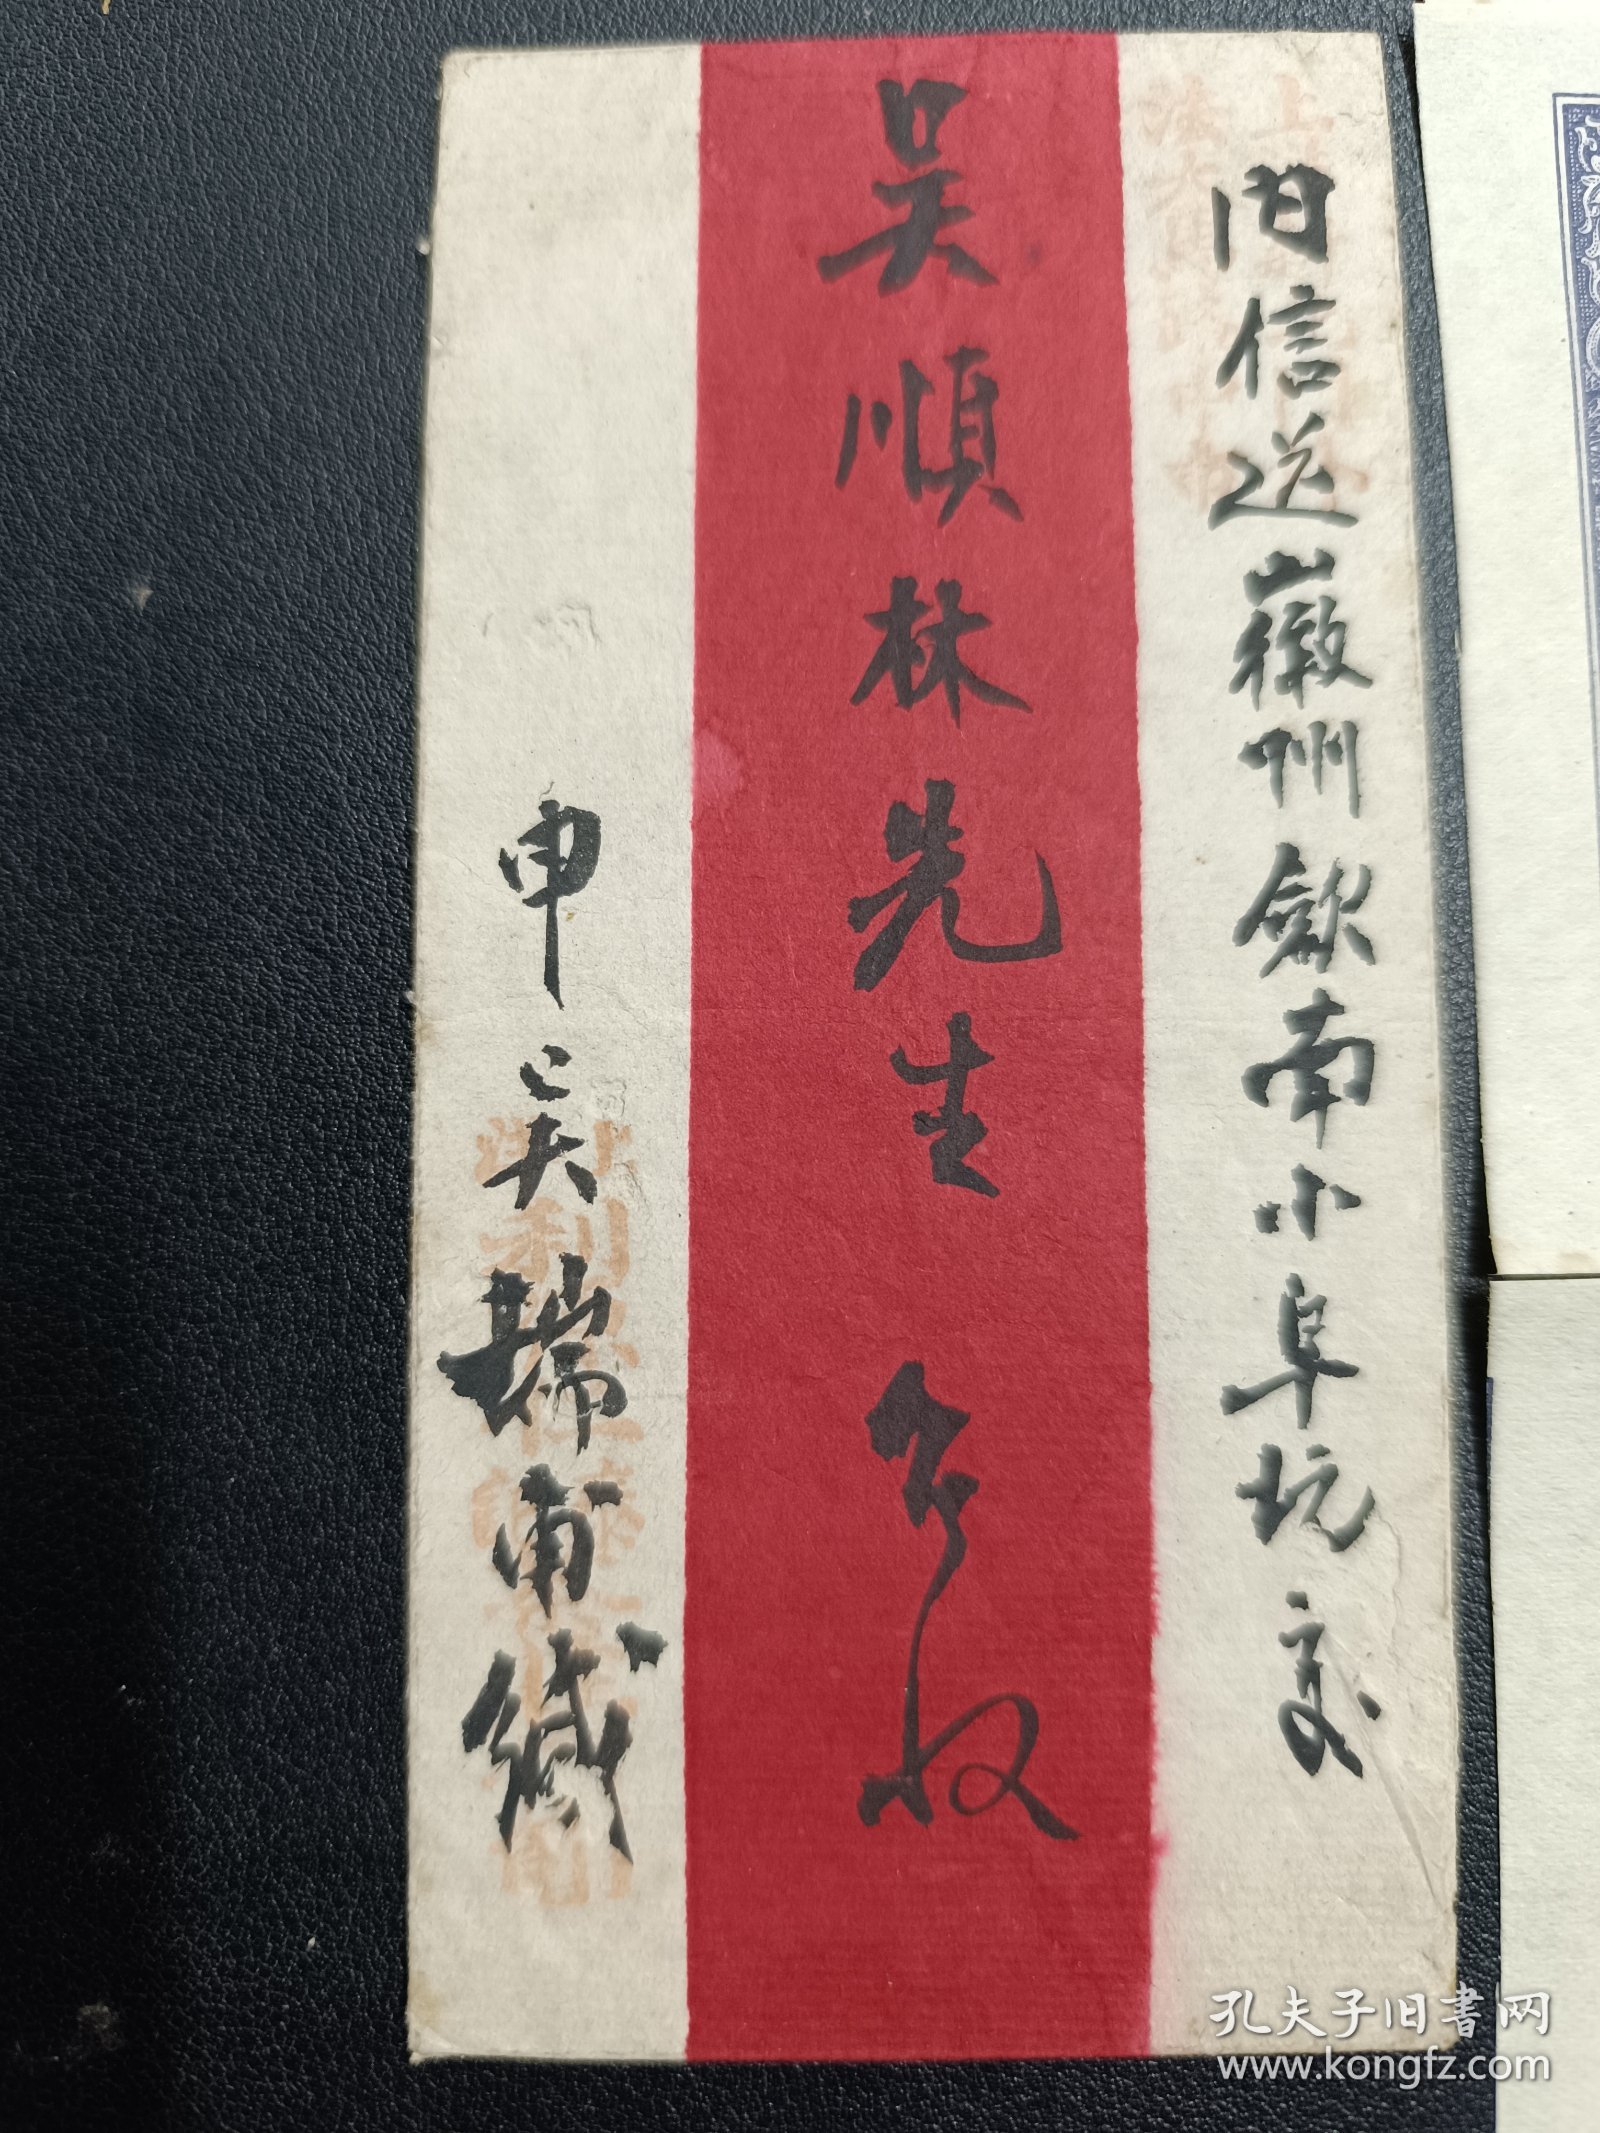 內信送徽州歙南小阜坑交
吳順林先生 台收
申吳瑞甫緘
孔夫子旧書网
www.kongfz.com